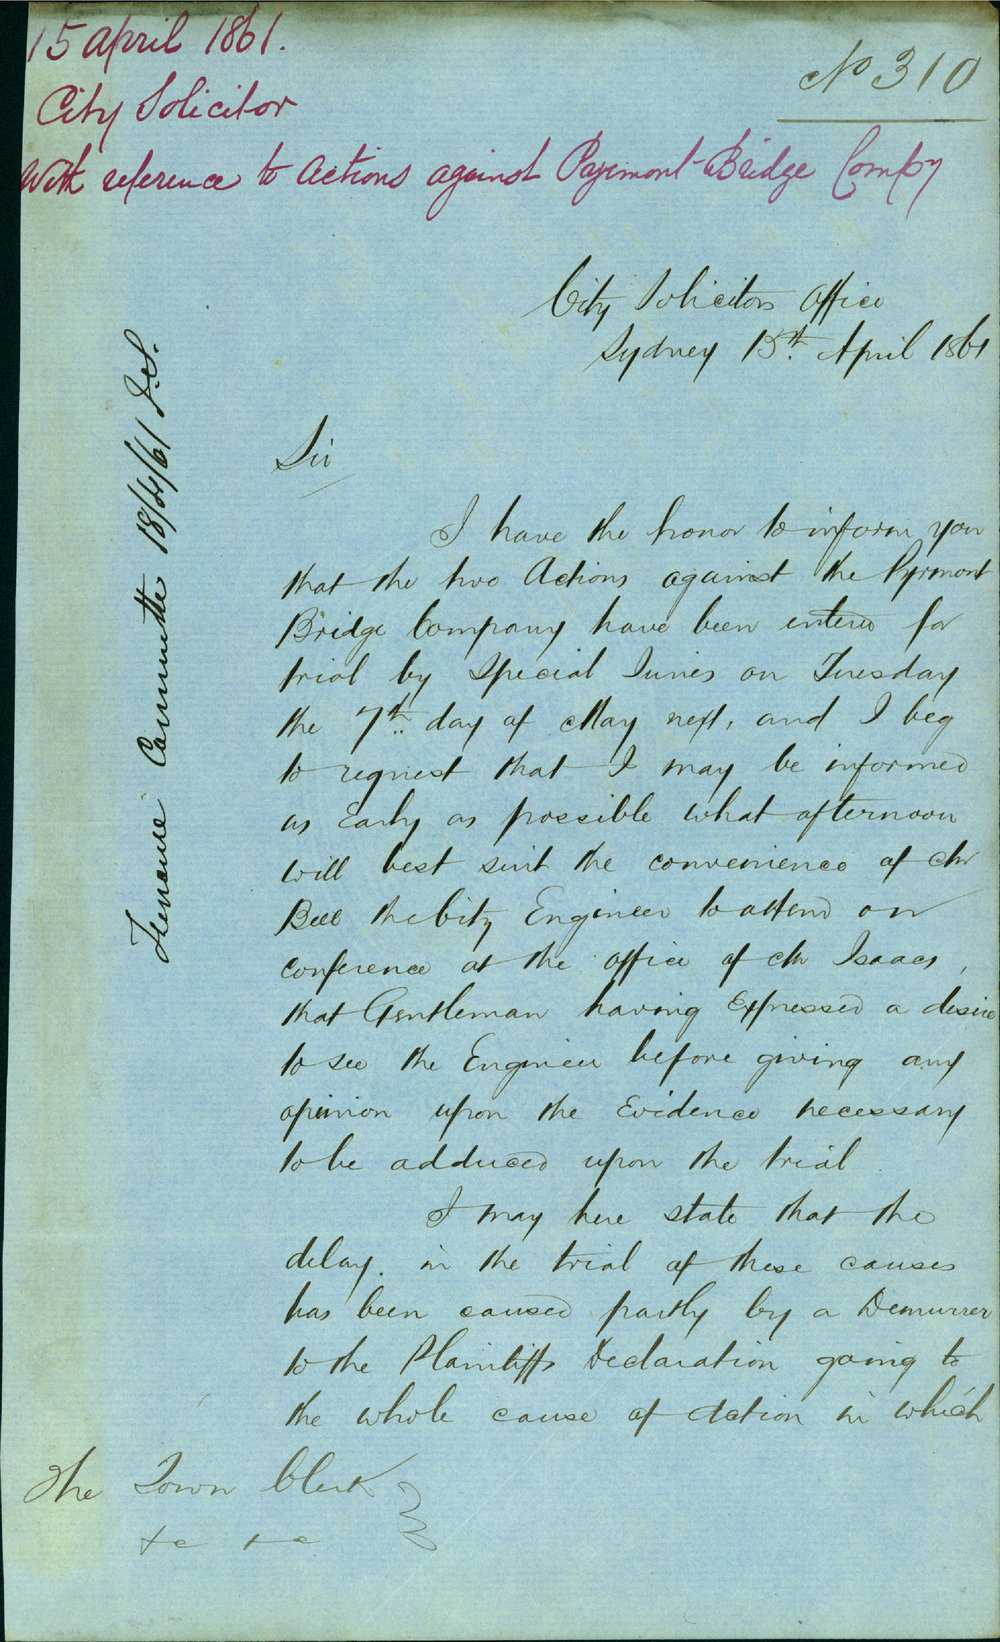 15 April 1861.
City Solicitor
With reference to Actions against Pyrmont Bridge Compy
No 310
City Solicitors Office
Sydney 15th. April 1861
Sir
I have the honor to inform you
that the two Actions against the Pyrmont
Bridge Company have been entered for
trial by Special Juries on Tuesday
the 7th day of May next, and I beg
to request that I may be informed
as Early as possible what afternoon
will best suit the convenience of Mr
Bell the City Engineer to attend on
conference at the office of Mr Isaacs,
that Gentleman having Expressed a desire
to see the Engineer before giving any
opinion upon the Evidence necessary
to be adduced upon the trial.
I may here state that the
delay in the trial of these causes
has been caused partly by a Demurrer
to the Plaintiffs Declaration going to
the whole cause of Action in which
The Town Clerk
&c &c
Finance Committee 18/4/61 J.S.